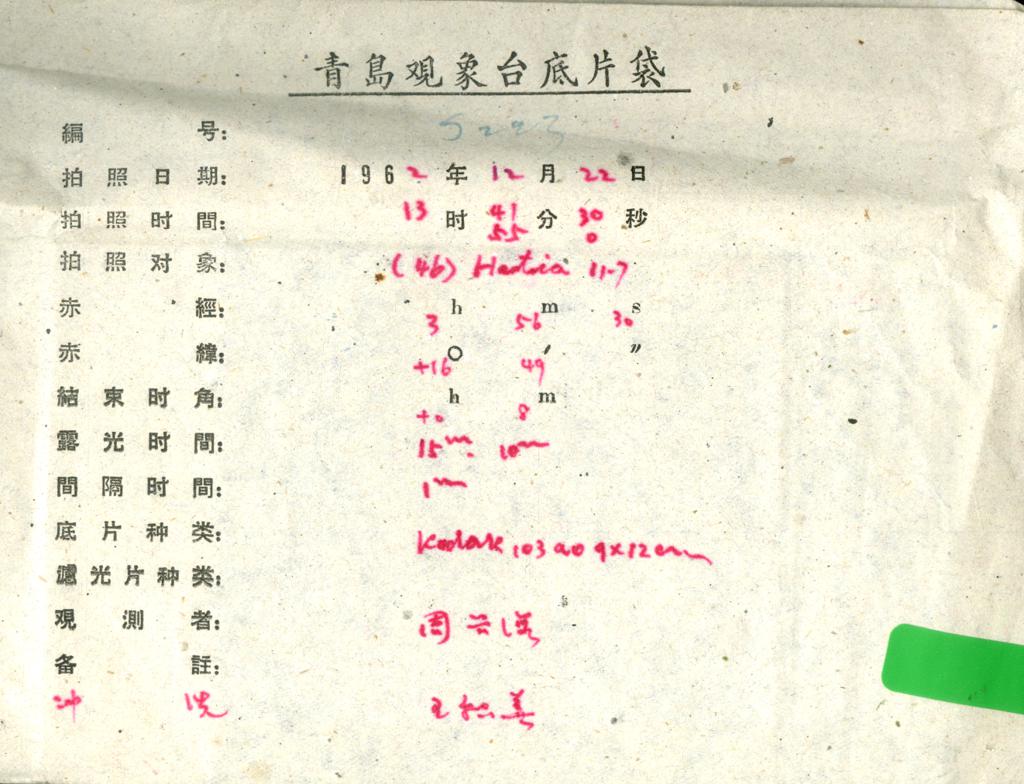 青島观象台底片袋
編号: 5223
拍照日期: 1962年12月22日
拍照时間: 13时41分30秒
55 0
拍照对象: (46) Hestia 11.7
赤經: 3h 56m 30s
赤緯: +16° 49′ ″
結束时角: +0h 8m
露光时間: 15m. 10m
間隔时間: 1m
底片种类: Kodak 103 a0 9x12cm
濾光片种类:
观測者: 周
备註:
冲洗 王 善